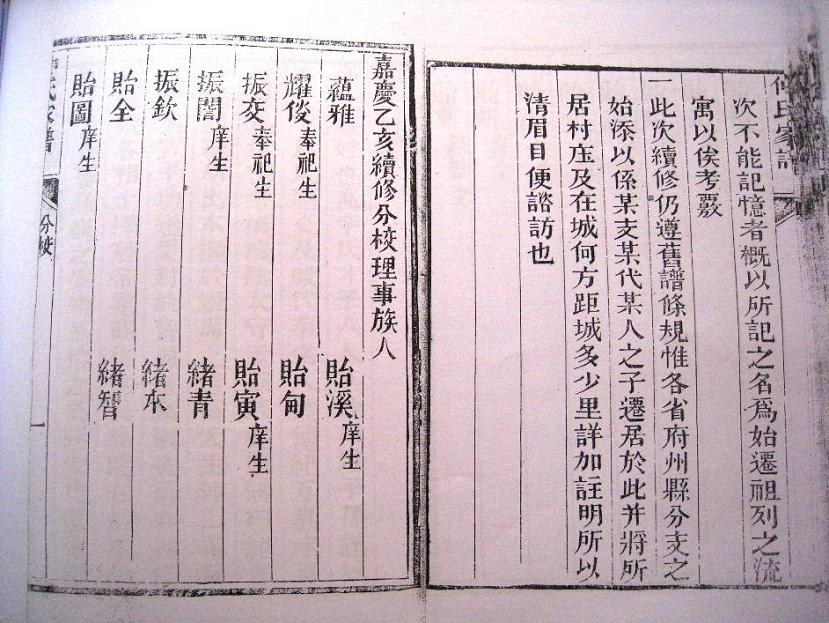 氏家譜
次不能記憶者概以所記之名為始遷祖列之流
寓以俟考覈
一此次續修仍遵舊譜條規惟各省府州縣分支之
始添以係某支某代某人之子遷居於此并將所
居村庄及在城何方距城多少里詳加註明所以
清眉目便諮訪也
嘉慶乙亥續修分校理事族人
蘊雅 貽溪庠生
耀俊奉祀生 貽甸
振交奉祀生 貽寅庠生
振誾庠生 緒青
振欽 緒本
貽全 緒智
貽圖庠生
氏家譜 分校 一